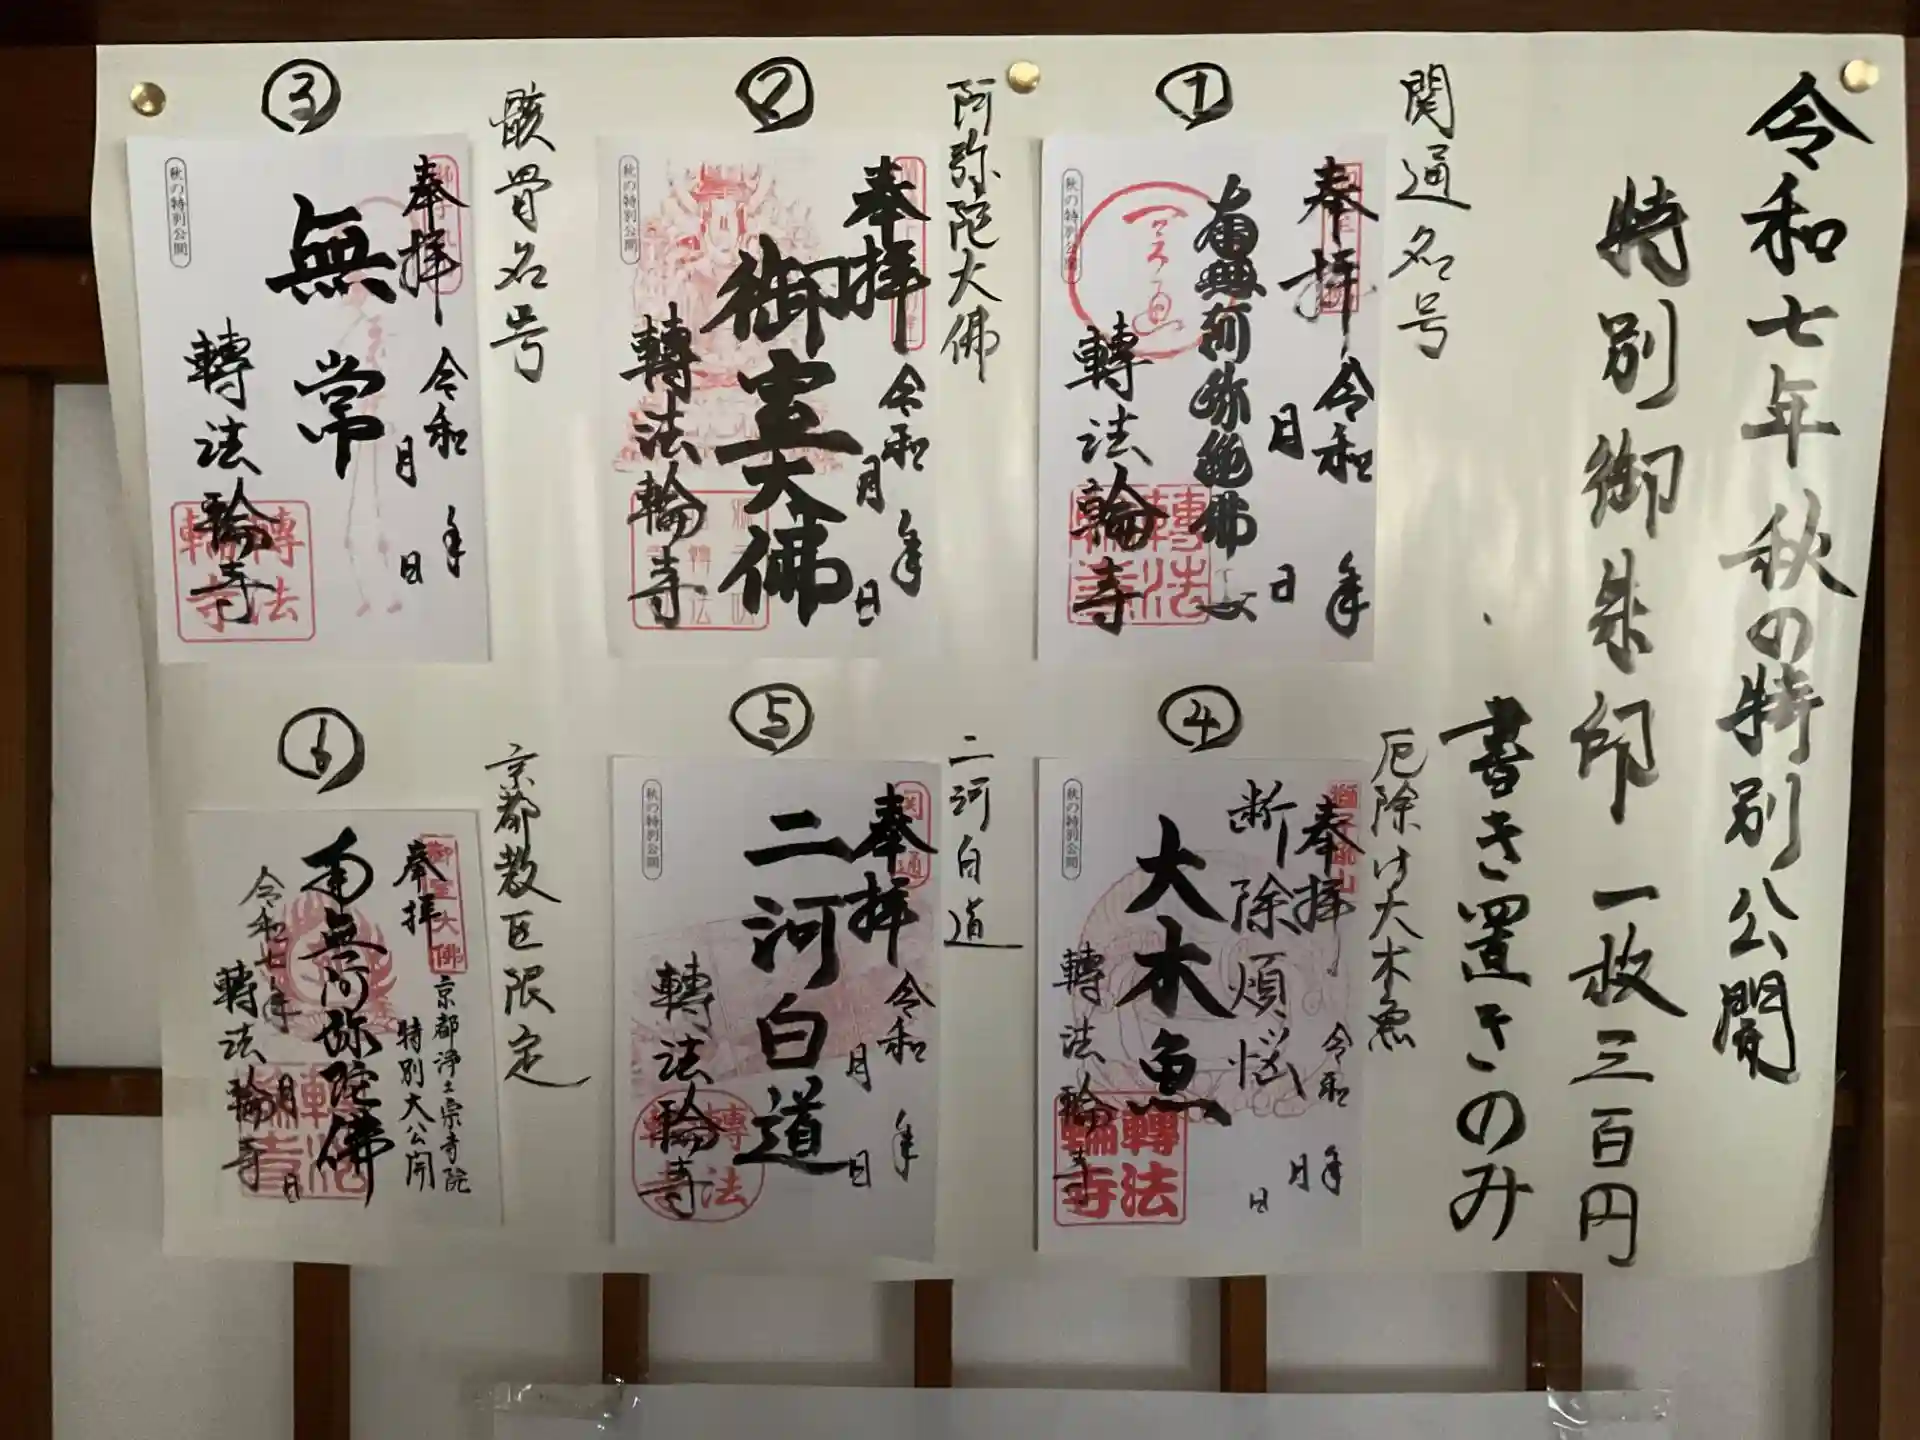 令和七年秋の特別公開
特別御朱印一枚三百円
書き置きのみ
①
関通名号
奉拝
令和 年
月 日
南無阿弥陀佛
轉法輪寺
秋の特別公開
轉法輪寺
②
阿弥陀大佛
奉拝
令和 年
月 日
御室大佛
轉法輪寺
秋の特別公開
③
骸骨名号
奉拝
令和 年
月 日
無常
轉法輪寺
秋の特別公開
轉法輪寺
④
厄除け大木魚
奉拝
令和 年
月
日
断除煩悩
大木魚
轉法輪寺
秋の特別公開
轉法輪寺
⑤
二河白道
関通
奉拝
令和 年
月 日
二河白道
轉法輪寺
秋の特別公開
轉法輪寺
⑥
京都教区限定
御室大佛
奉拝
京都浄土宗寺院
特別大公開
南無阿弥陀佛
令和七年
月 日
轉法輪寺
轉法輪寺